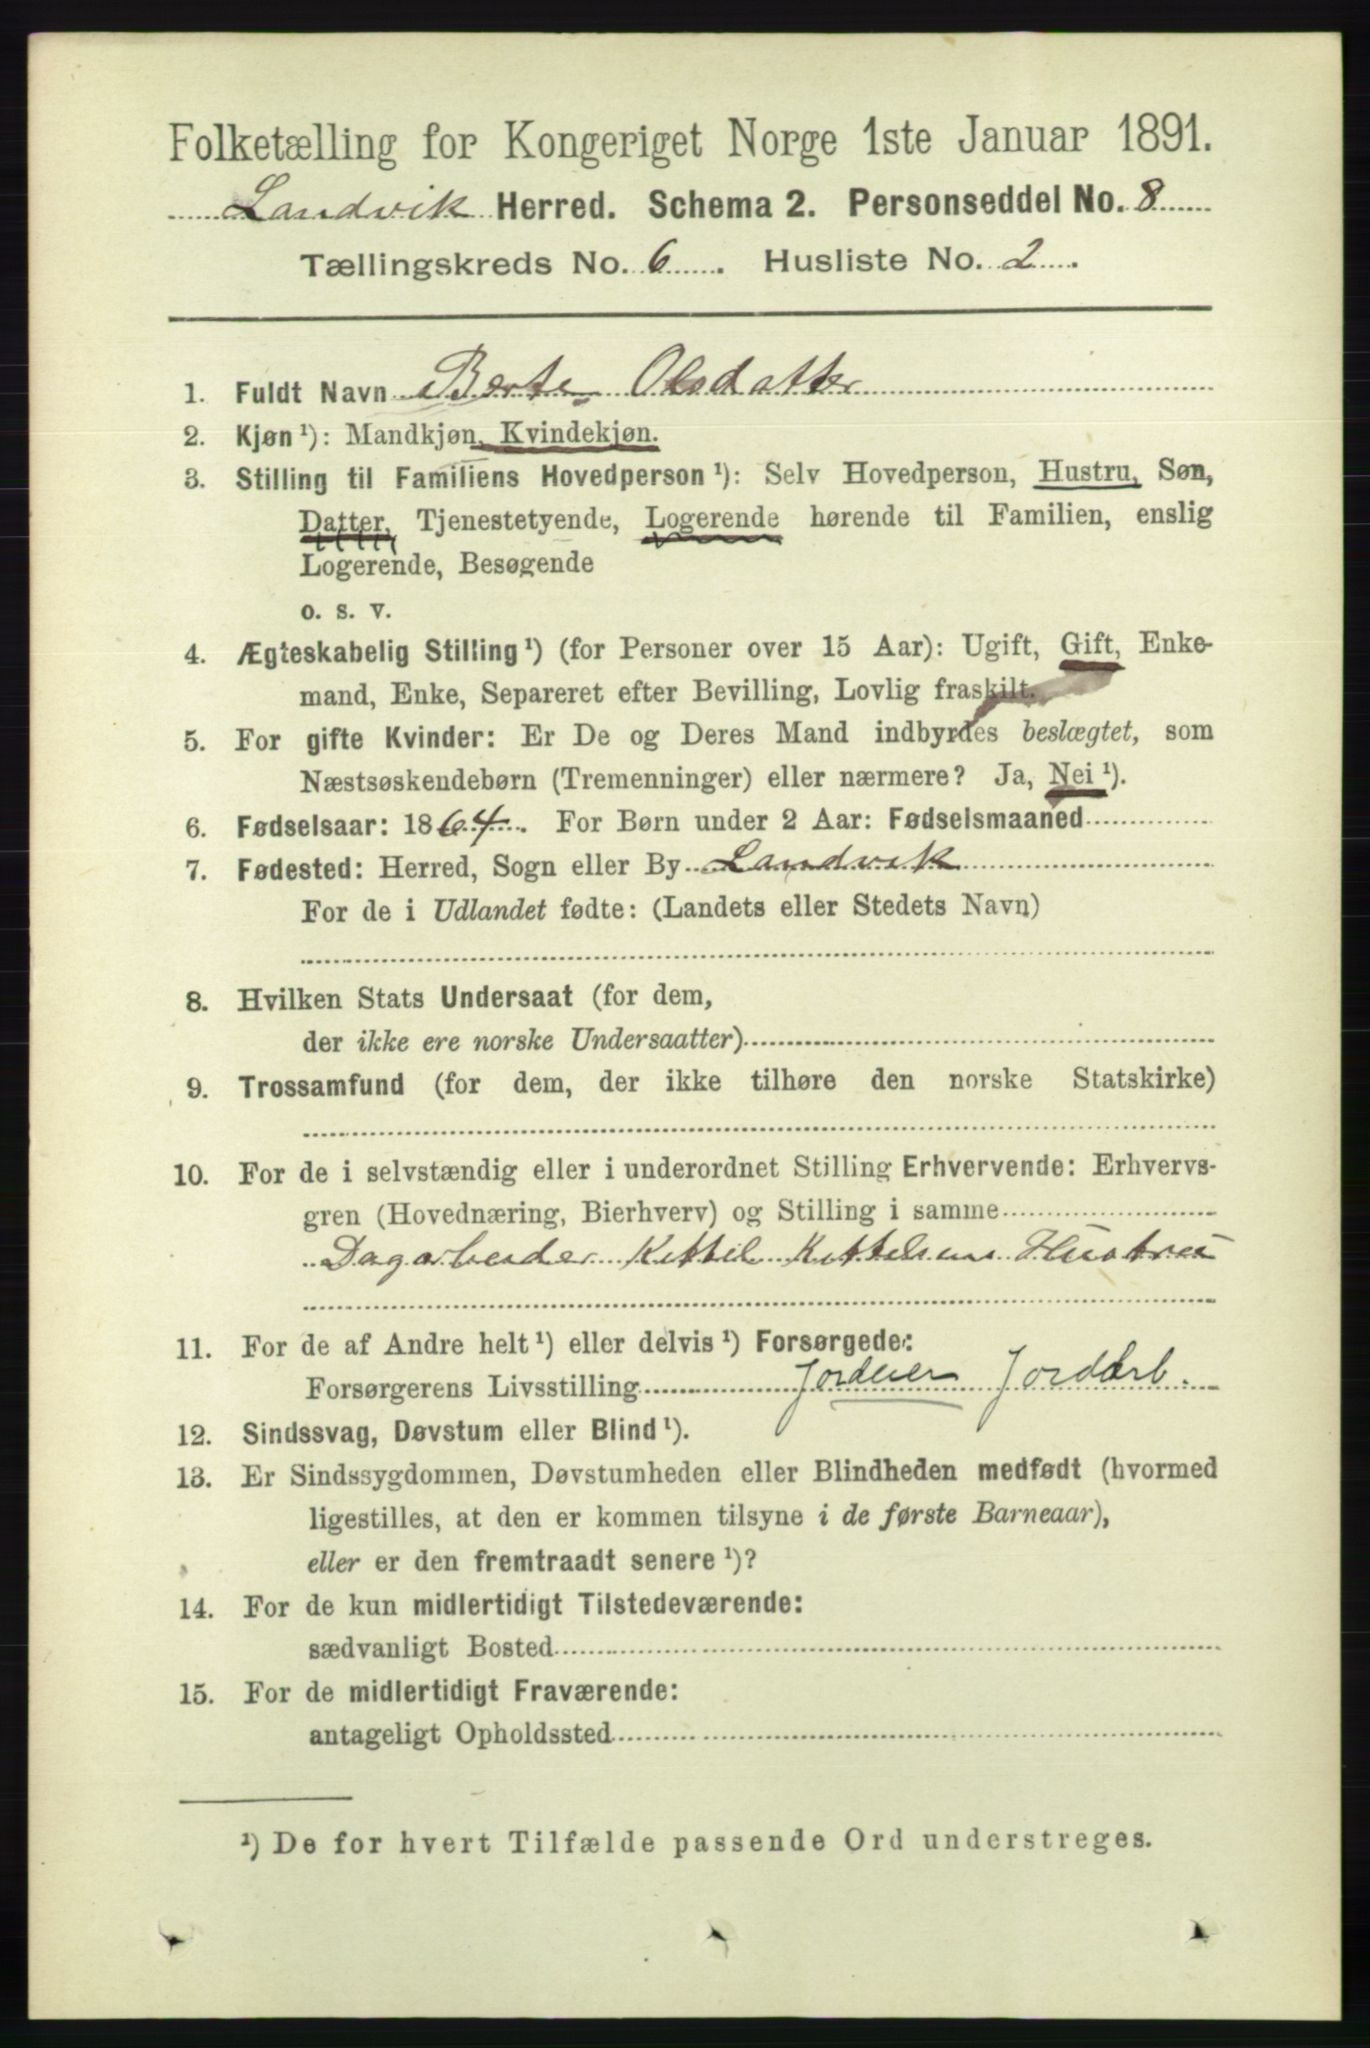 Folketælling for Kongeriget Norge 1ste Januar 1891.
Landvik Herred. Schema 2. Personseddel No. 8
Tællingskreds No. 6. Husliste No. 2.
1. Fuldt Navn Berte Olsdatter
2. Kjøn ¹): Mandkjøn, Kvindekjøn.
3. Stilling til Familiens Hovedperson ¹): Selv Hovedperson, Hustru, Søn,
Datter, Tjenestetyende, Logerende hørende til Familien, enslig
Logerende, Besøgende
o. s. v.
4. Ægteskabelig Stilling ¹) (for Personer over 15 Aar): Ugift, Gift, Enke-
mand, Enke, Separeret efter Bevilling, Lovlig fraskilt.
5. For gifte Kvinder: Er De og Deres Mand indbyrdes beslægtet, som
Næstsøskendebørn (Tremenninger) eller nærmere? Ja, Nei ¹).
6. Fødselsaar: 1864. For Børn under 2 Aar: Fødselsmaaned
7. Fødested: Herred, Sogn eller By Landvik
For de i Udlandet fødte: (Landets eller Stedets Navn)
8. Hvilken Stats Undersaat (for dem,
der ikke ere norske Undersaatter)
9. Trossamfund (for dem, der ikke tilhøre den norske Statskirke)
10. For de i selvstændig eller i underordnet Stilling Erhvervende: Erhvervs-
gren (Hovednæring, Bierhverv) og Stilling i samme
Dagarbeider Kittil Kittelsens Hustru
11. For de af Andre helt ¹) eller delvis ¹) Forsørgede:
Forsørgerens Livsstilling Jordeier Jordarb.
12. Sindssvag, Døvstum eller Blind ¹).
13. Er Sindssygdommen, Døvstumheden eller Blindheden medfødt (hvormed
ligestilles, at den er kommen tilsyne i de første Barneaar),
eller er den fremtraadt senere ¹)?
14. For de kun midlertidigt Tilstedeværende:
sædvanligt Bosted
15. For de midlertidigt Fraværende:
antageligt Opholdssted
¹) De for hvert Tilfælde passende Ord understreges.